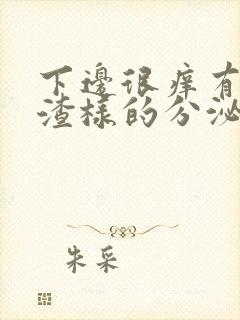 下邊很痒有
渣樣的分泌
朱采